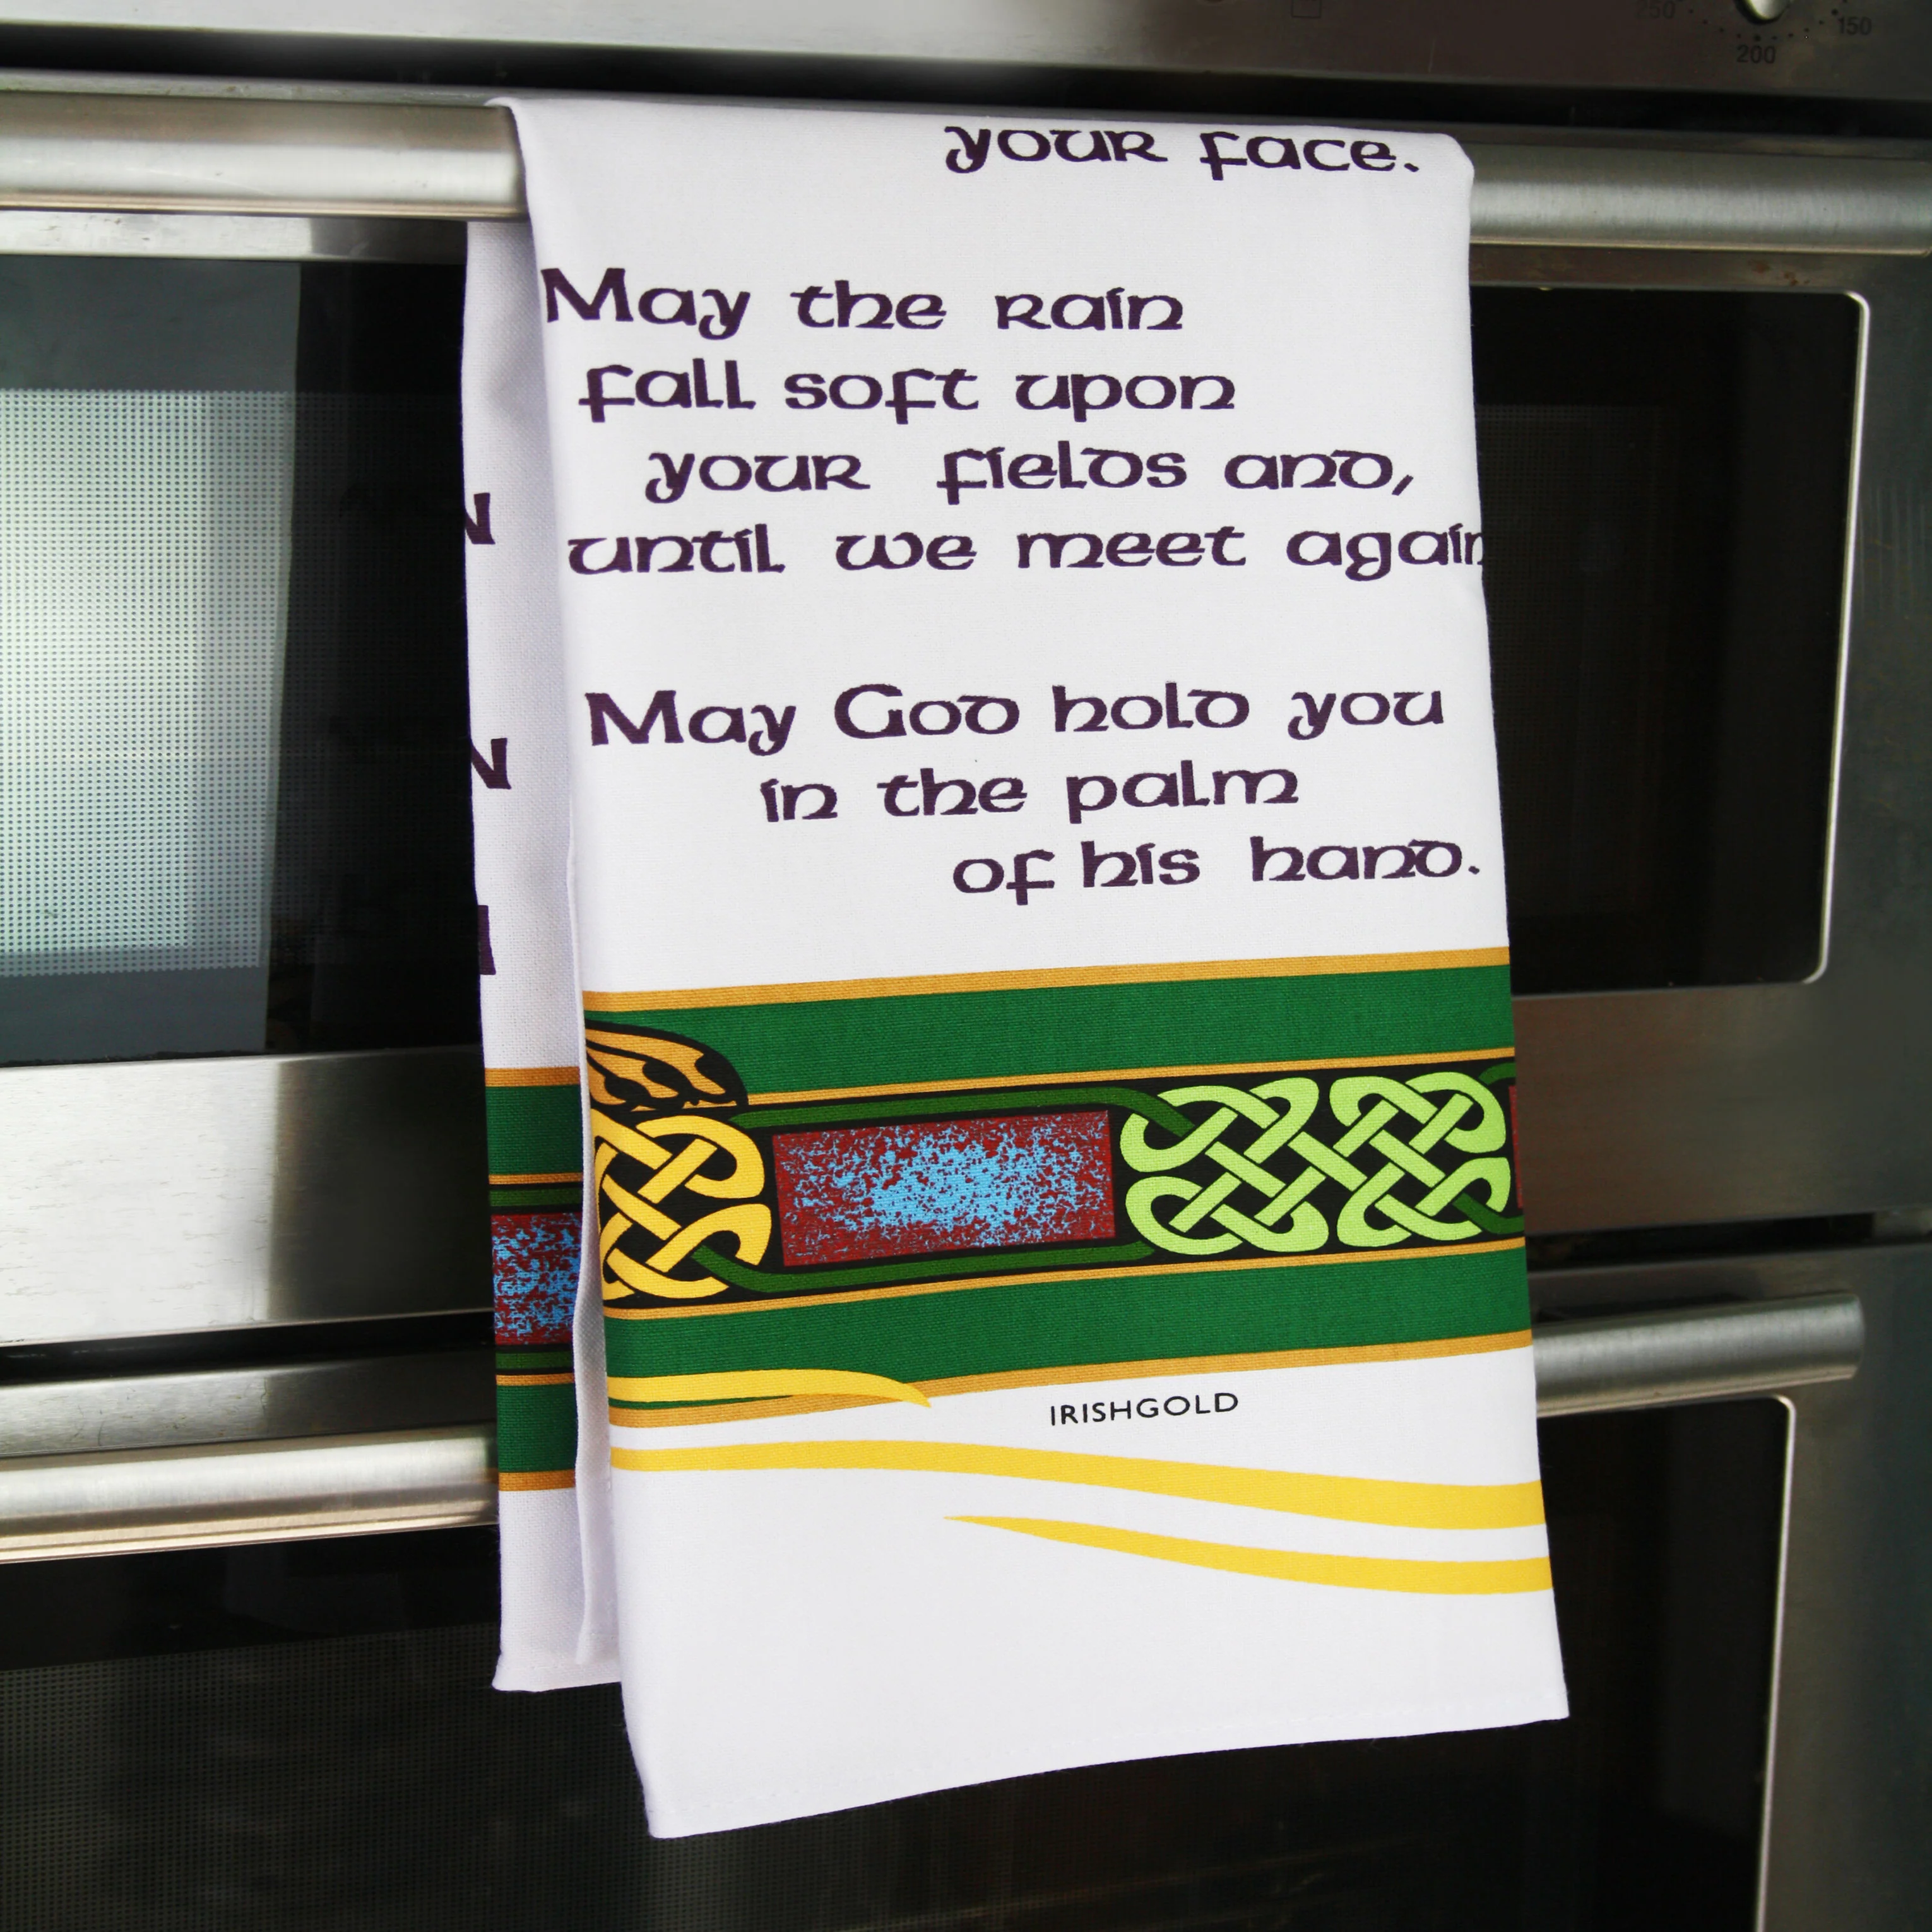 250
150
200
your face.
May the rain
fall soft upon
your fields and,
until we meet again
May God hold you
in the palm
of his hand.
IRISHGOLD